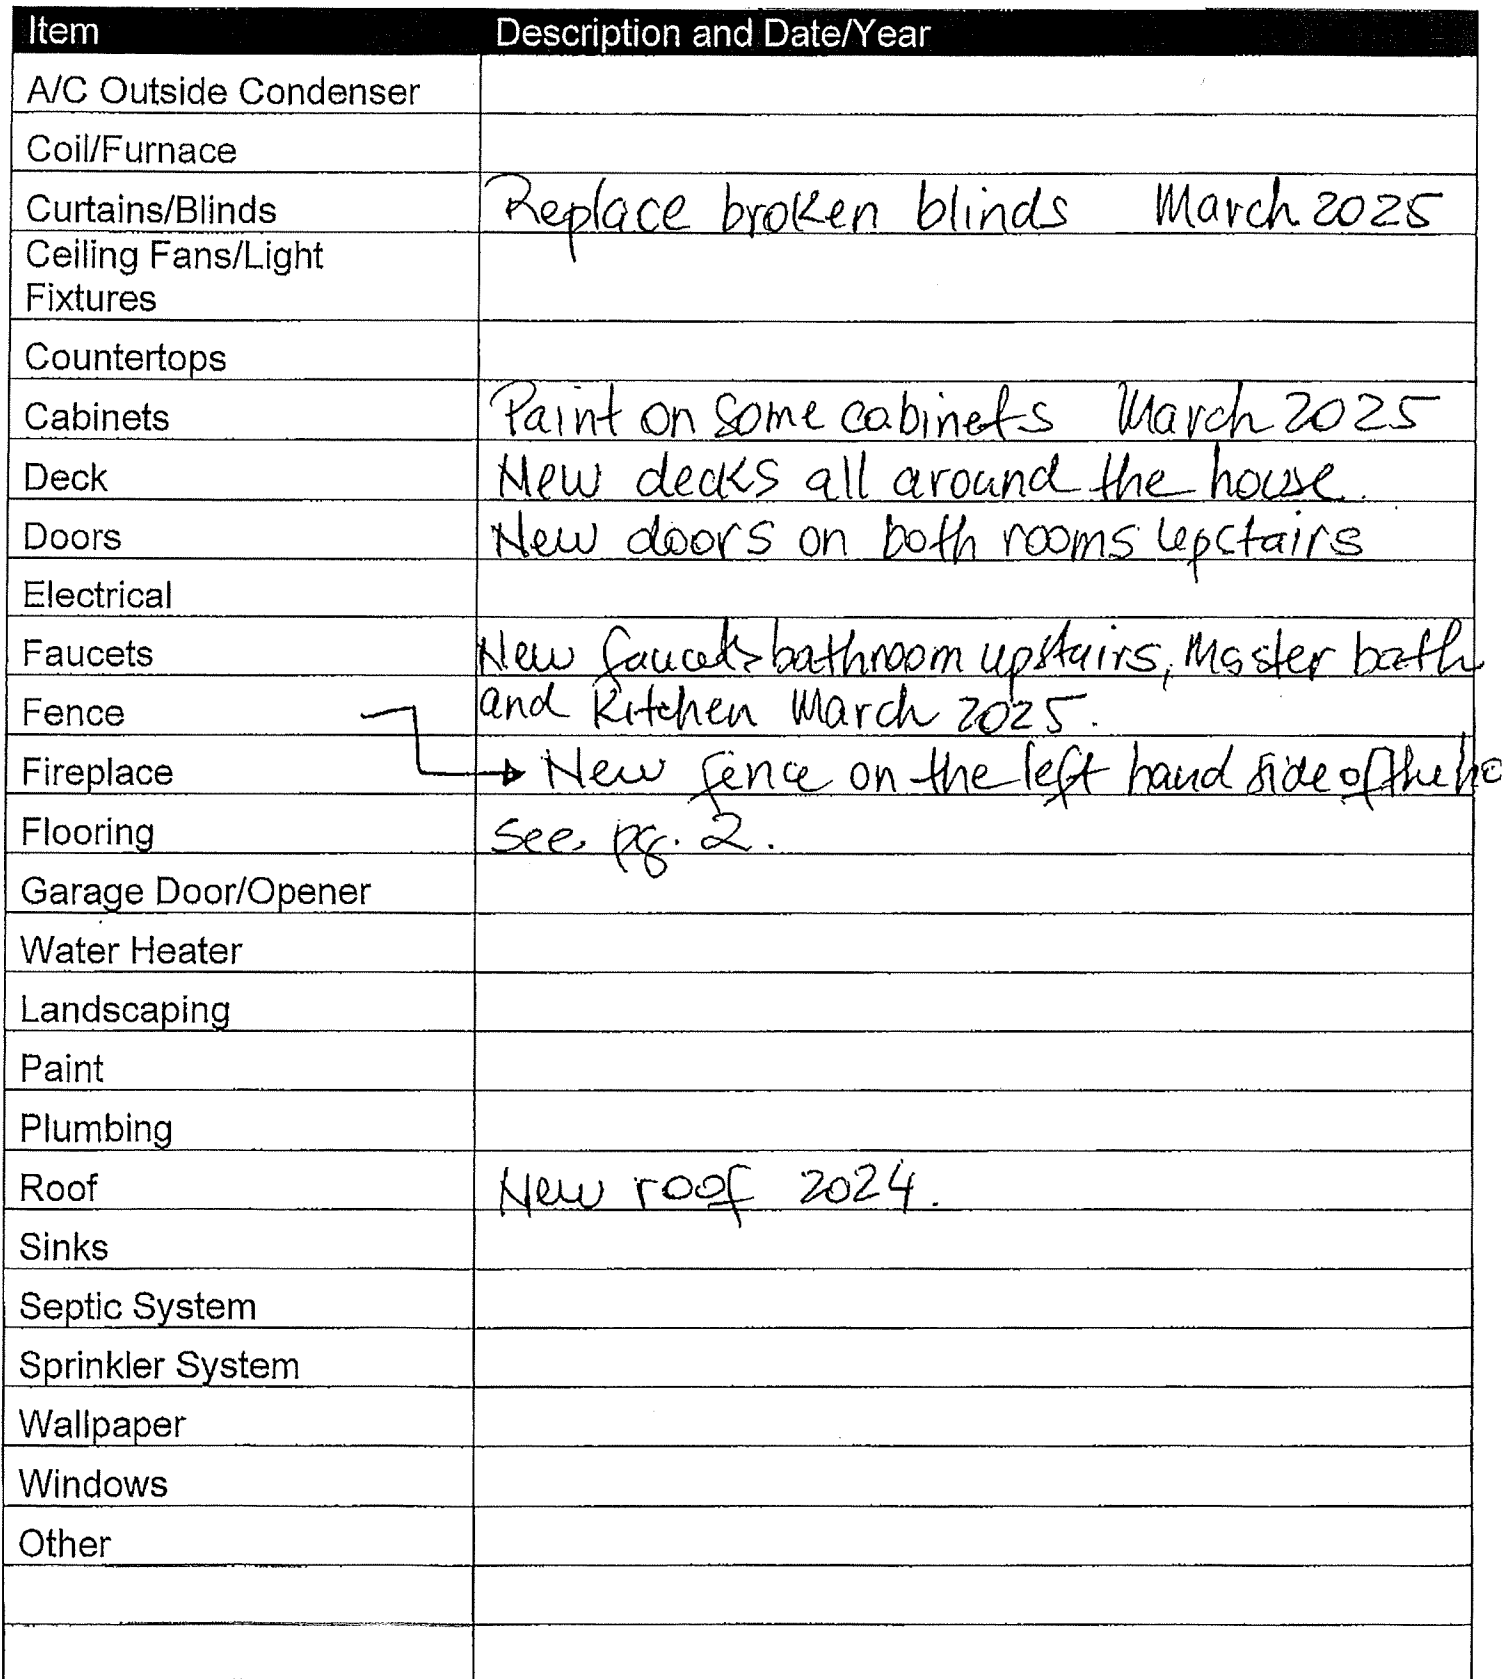 Item Description and Date/Year
A/C Outside Condenser
Coil/Furnace
Curtains/Blinds Replace broken blinds March 2025
Ceiling Fans/Light
Fixtures
Countertops
Cabinets Paint on some cabinets March 2025
Deck New decks all around the house.
Doors New doors on both rooms upstairs
Electrical
Faucets New faucets bathroom upstairs, Master bath
Fence and Kitchen March 2025.
Fireplace New fence on the left hand side of the ho
Flooring See pg. 2.
Garage Door/Opener
Water Heater
Landscaping
Paint
Plumbing
Roof New roof 2024.
Sinks
Septic System
Sprinkler System
Wallpaper
Windows
Other